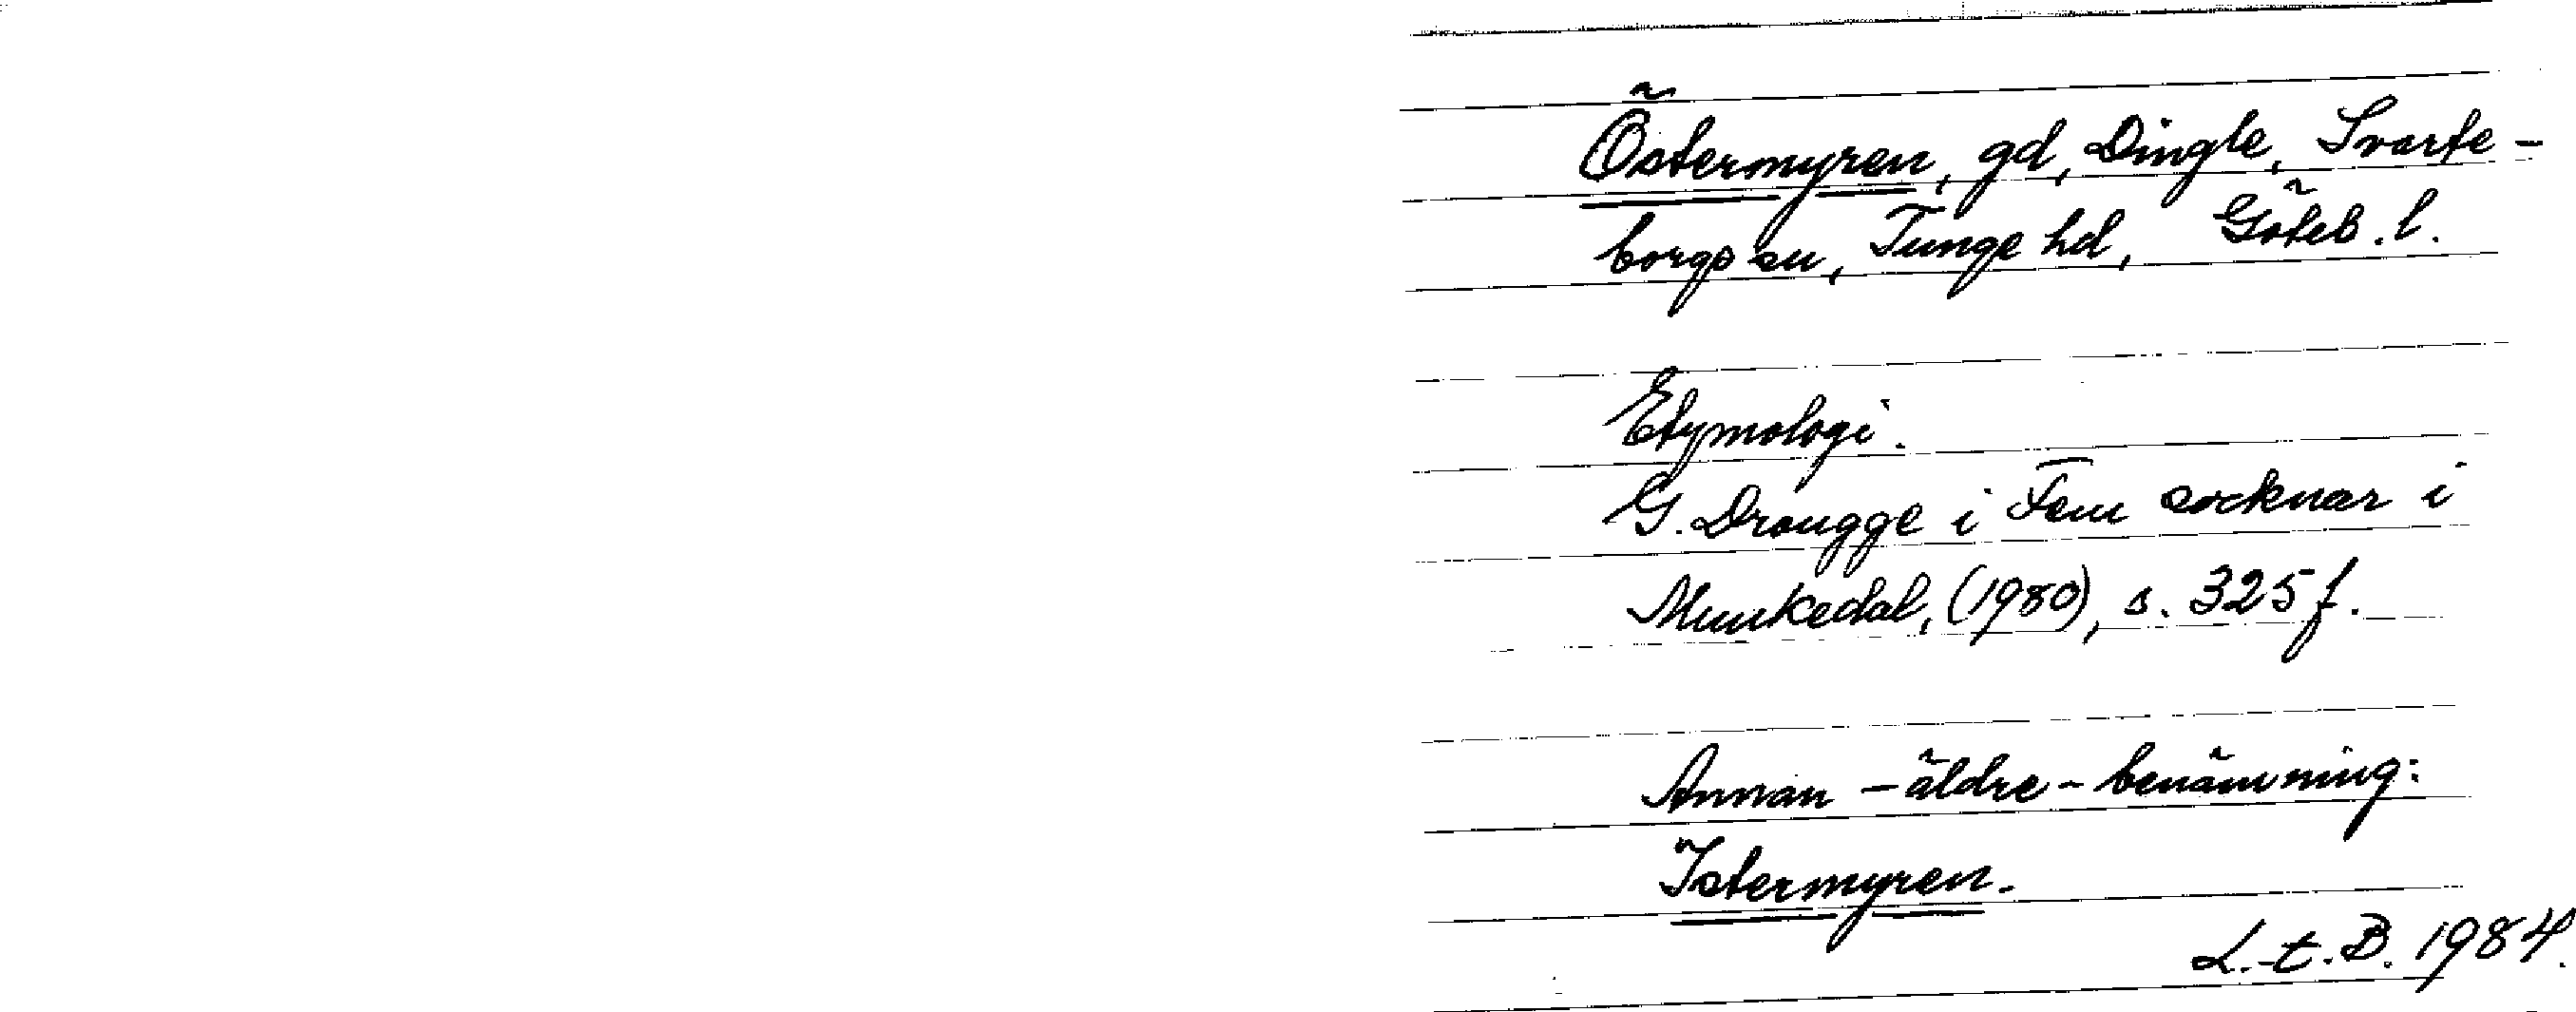 Östermyren, gd, Dingle, Svarte-
borgs sn, Tunge hd, Göteb. l.
Etymologi.
G. Drougge i Fem socknar i
Munkedal, (1980), s. 325 f.
Annan - äldre - benämning:
Istermyren.
L.-t. B. 1984.